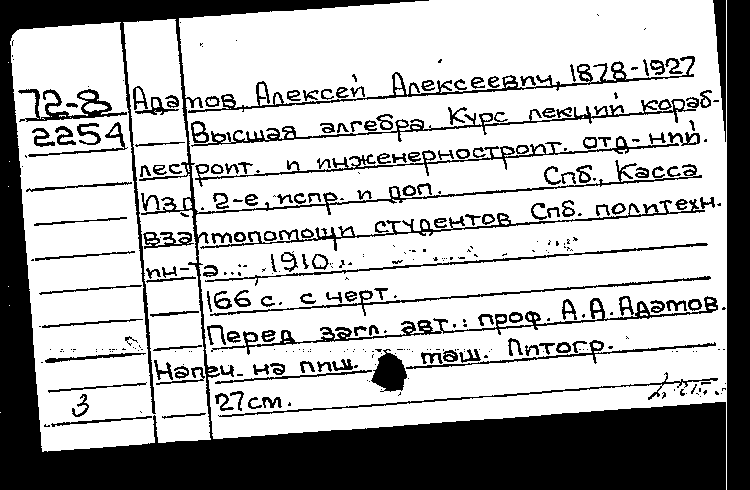 72-8 Адамов, Алексей Алексеевич, 1878-1927
2254 Высшая алгебра. Курс лекций кораб-
лестроит. и инженерностроит. отд-ний.
Изд. 2-е, испр. и доп. Спб., Касса
взаимопомощи студентов Спб. политехн.
ин-та..., 1910.
166 с. с черт.
Перед загл. авт.: проф. А.А.Адамов.
Напеч. на пиш. маш. Литогр.
3 27см.